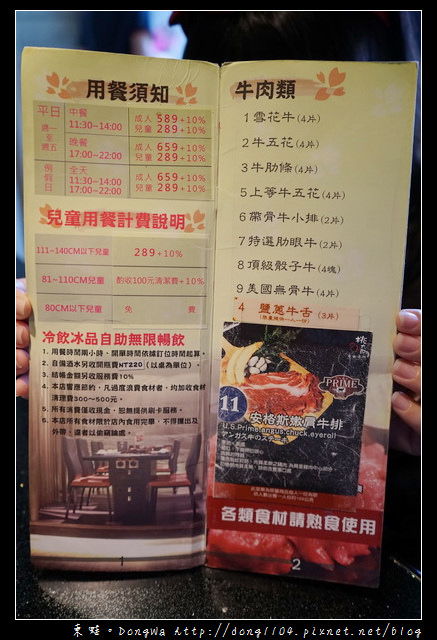 用餐須知
平日
週一至週五
中餐
11:30~14:00
成人 589+10%
兒童 289+10%
晚餐
17:00~22:00
成人 659+10%
兒童 289+10%
例假日
全天
11:30~14:00
17:00~22:00
成人 659+10%
兒童 289+10%
兒童用餐計費說明
111~140CM以下兒童 289+10%
81~110CM兒童 酌收100元清潔費+10%
80CM以下兒童 免 費
冷飲冰品自助無限暢飲
1. 用餐時間兩小時，開單時間依據訂位時間起算。
2. 自備酒水另收開瓶費NT220（以桌為單位）。
3. 結帳金額另收服務費10%
4. 本店響應節約，凡過度浪費食材者，均加收食材
清理費300~500元。
5. 所有消費僅收現金，恕無提供刷卡服務。
6. 本店所有食材限於店內食用完畢，不得攜出及
外帶，違者以偷竊論處。
1
牛肉類
1 雪花牛(4片)
2 牛五花(4片)
3 牛肋條(4片)
5 上等牛五花(4片)
6 帶骨牛小排(2片)
7 特選肋眼牛(2片)
8 頂級骰子牛(4塊)
9 美國無骨牛(4片)
4 鹽蔥牛舌(3片)
PRIME
11 安格斯嫩肩牛排
U.S.Prime angus chuck eyeroll
各類食材請熟食使用
2
東蛙。DongWa http://dong1104.pixnet.net/blog